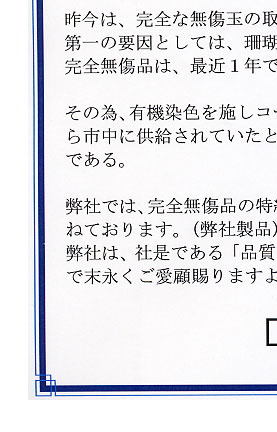 昨今は、完全な無傷玉の取
第一の要因としては、珊瑚
完全無傷品は、最近１年で
その為、有機染色を施しコー
ら市中に供給されていたと
である。
弊社では、完全無傷品の特
ねております。（弊社製品）
弊社は、社是である「品質
で末永くご愛顧賜りますよ